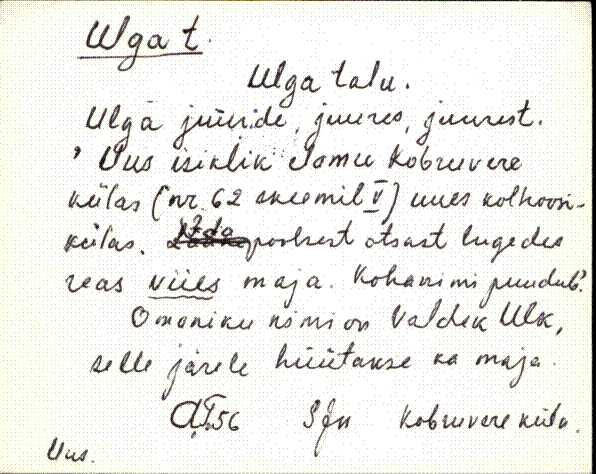 Ulga t.
Ulga talu.
Ulga juuride, juures, juurest.
' Uus isiklik Jomu Kobruvere
külas (nr. 62 skeemil V) uues kolhoosi-
külas. Ida poolsest otsast lugedes
reas viies maja. Kohanimi puudub.'
Omaniku nimi on Valdek Ulk,
selle järele hüütakse ka maja.
56 SJn Kobruvere küla.
Uus.